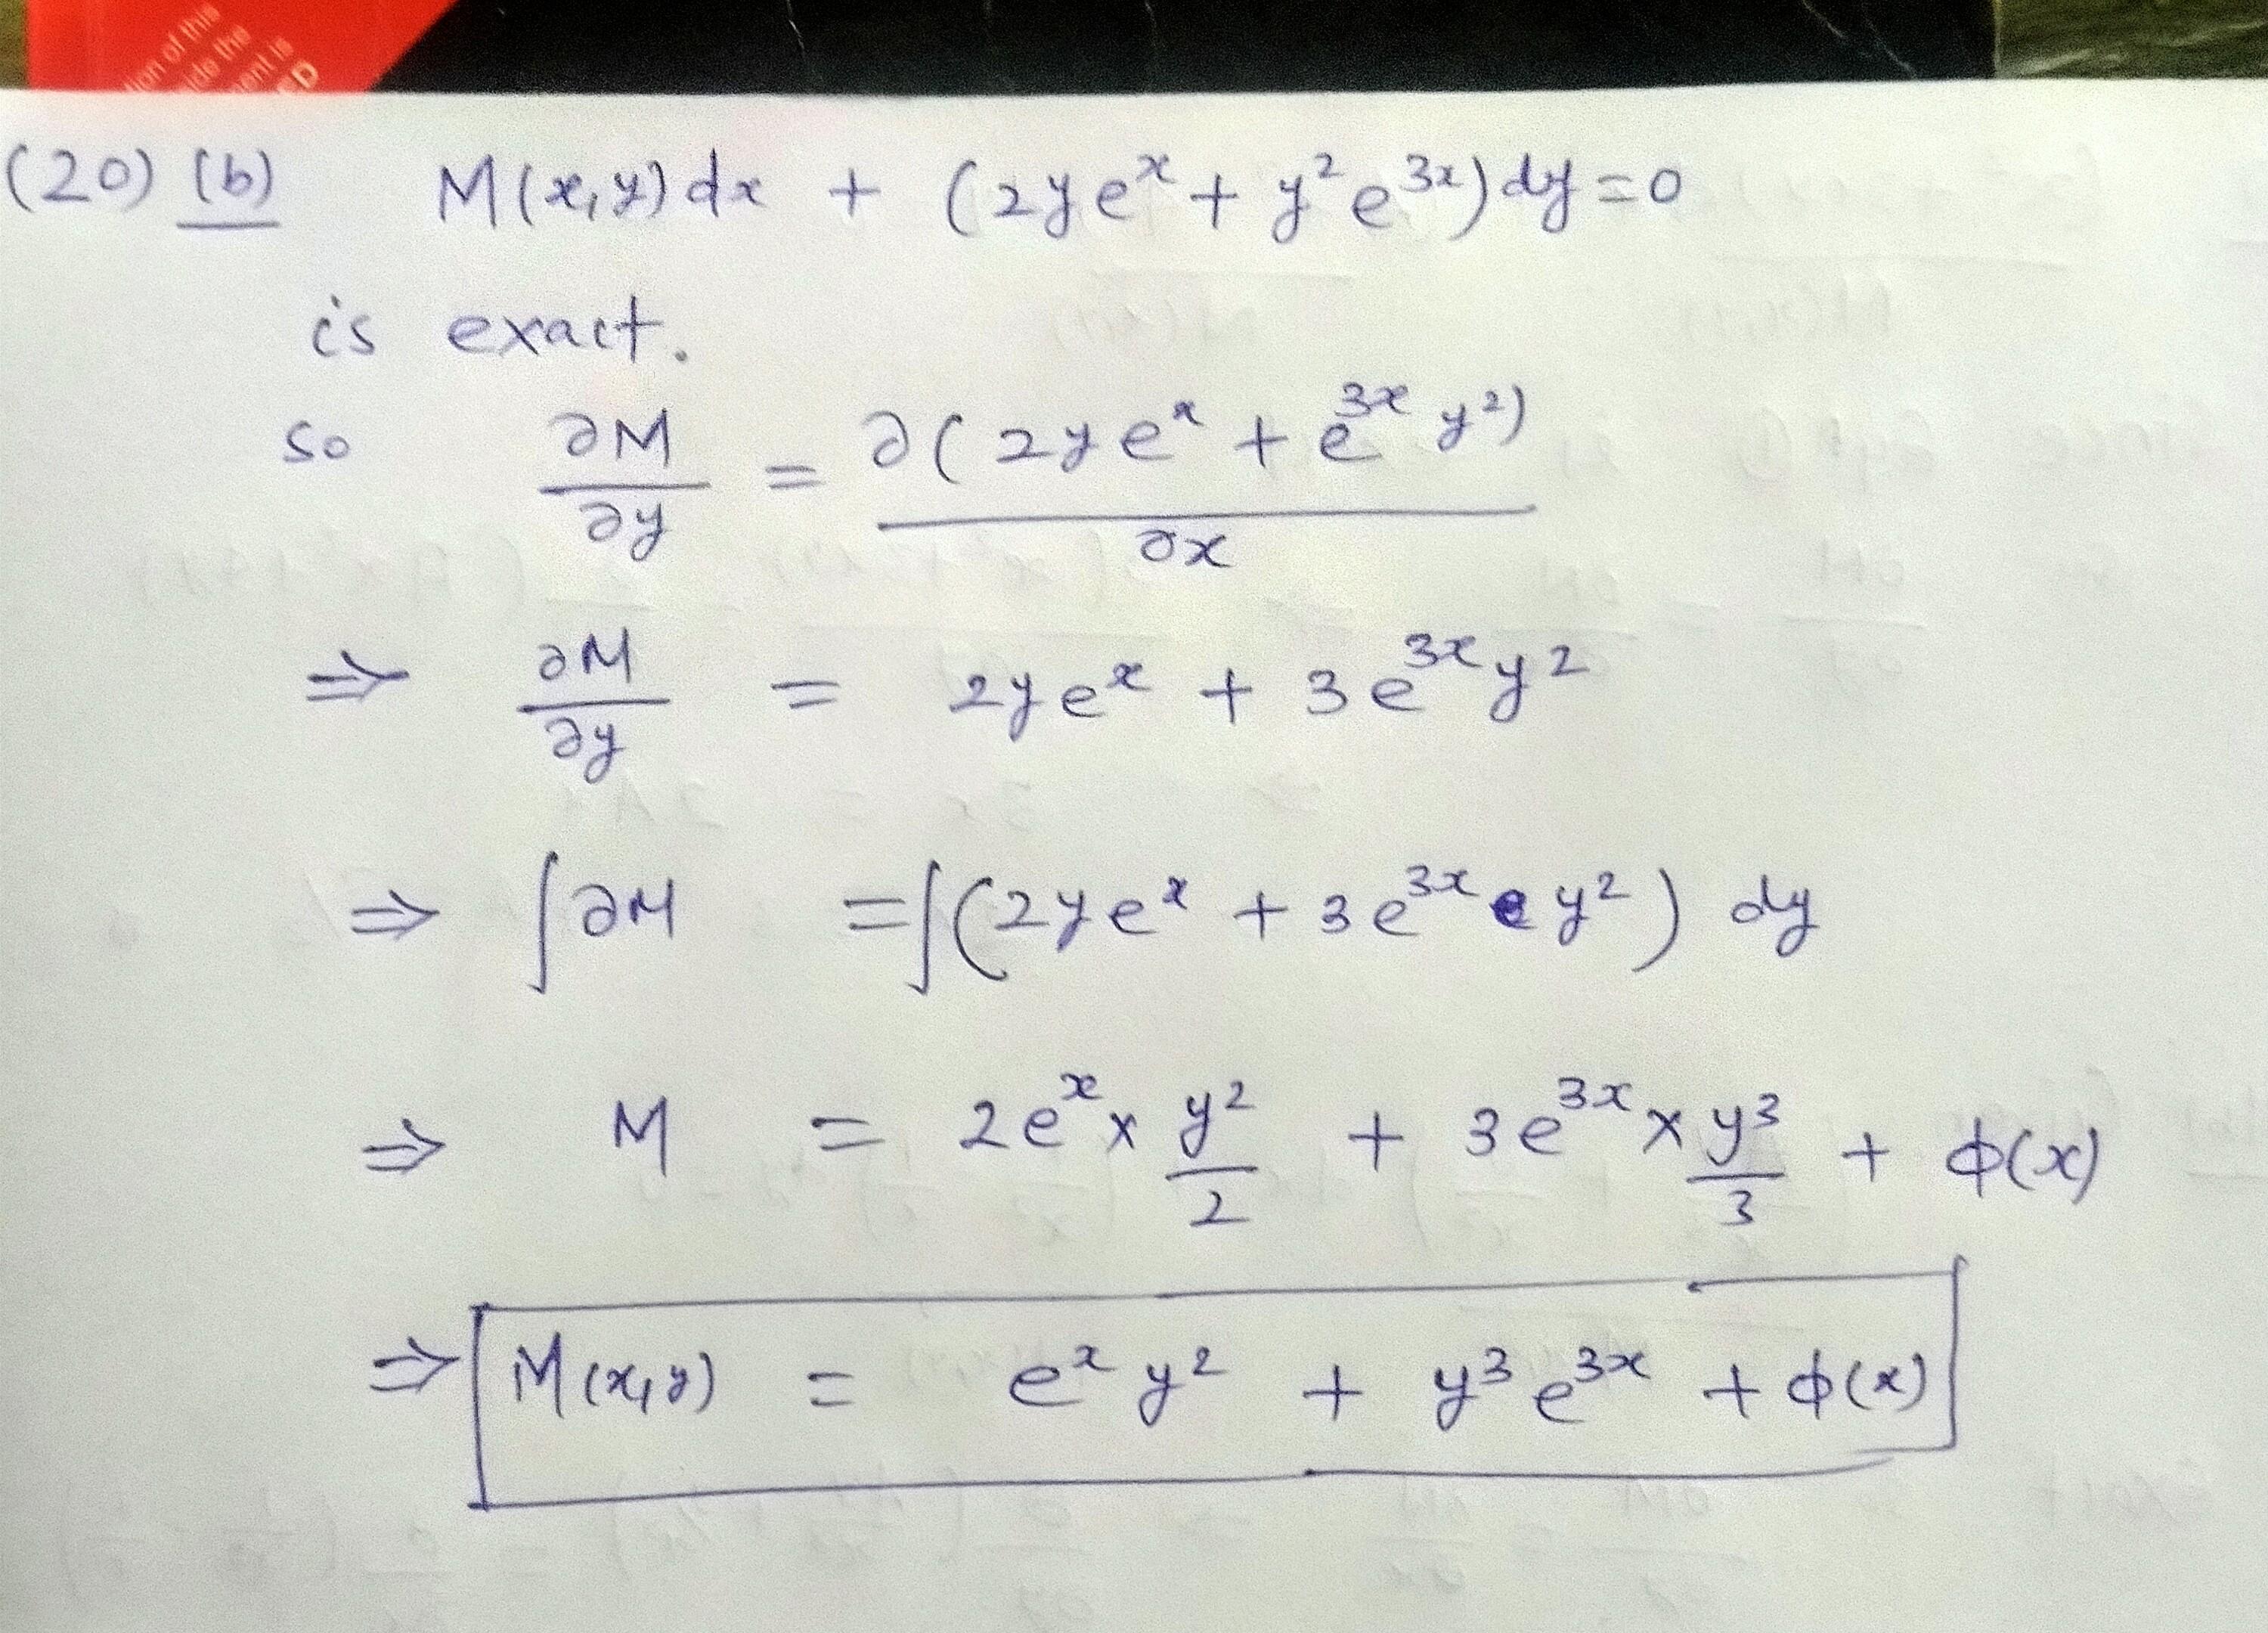 tion of this
ide the
ment is
ED
(20) (b) M(x,y)dx + (2ye^x + y²e^3x)dy=0
is exact.
so ∂M/∂y = ∂(2ye^x + e^3x y²)/∂x
⇒ ∂M/∂y = 2ye^x + 3e^3x y²
⇒ ∫∂M = ∫(2ye^x + 3e^3x y²) dy
⇒ M = 2e^x × y²/2 + 3e^3x × y³/3 + ϕ(x)
⇒ M(x,y) = e^x y² + y³e^3x + ϕ(x)